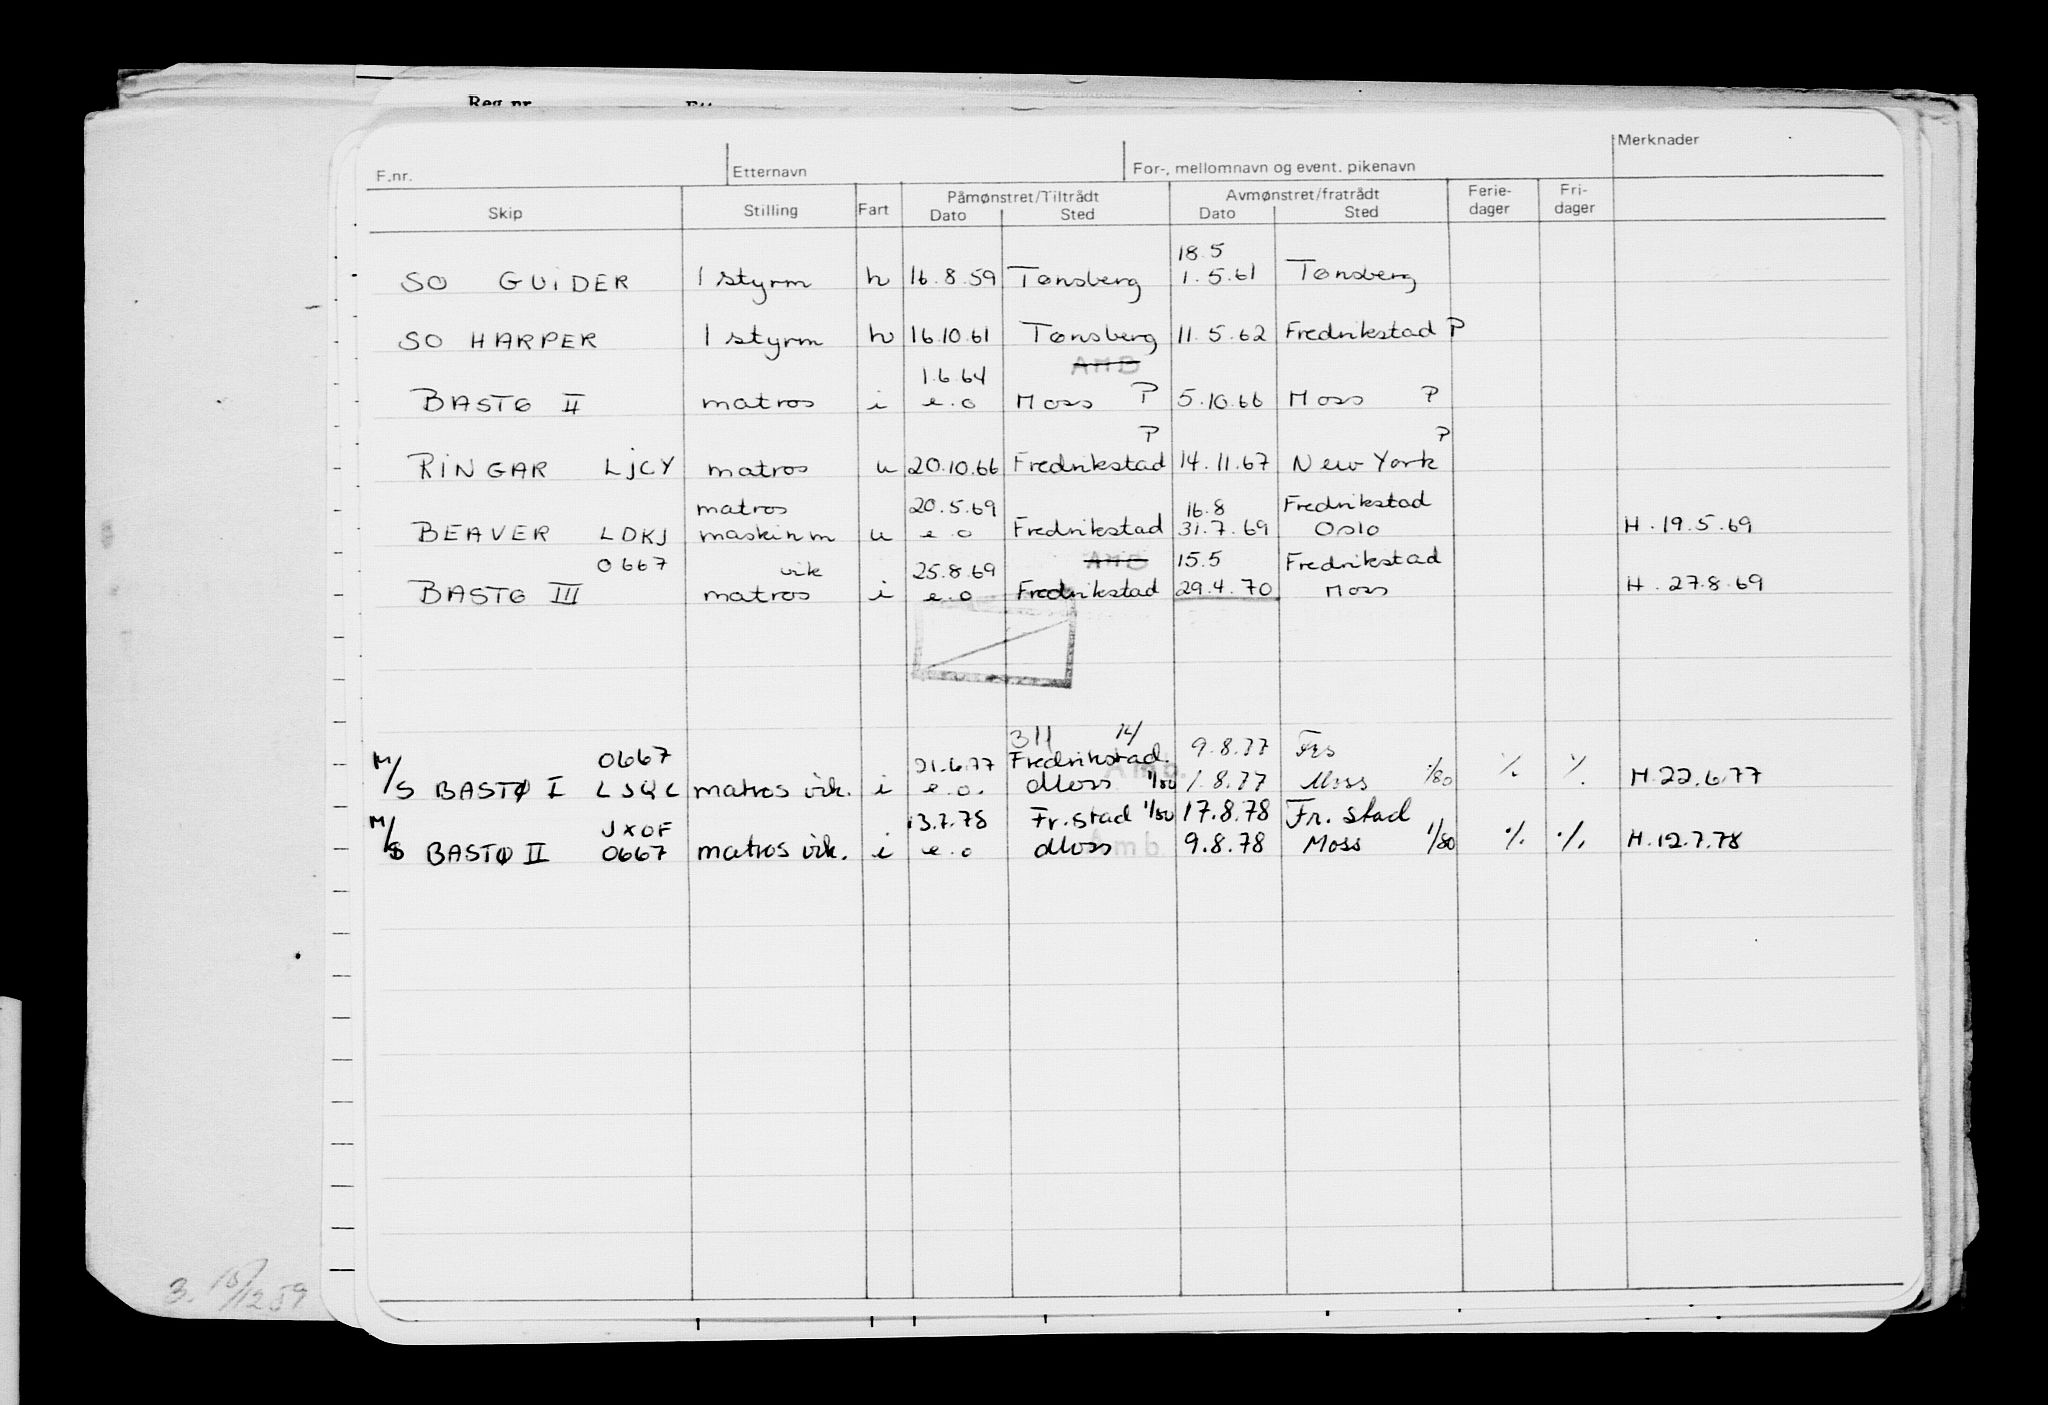 Reg.nr.
F.nr. Etternavn For-, mellomnavn og event. pikenavn Merknader
Skip Stilling Fart Påmønstret/Tiltrådt Avmønstret/fratrådt Ferie-dager Fri-dager
Dato Sted Dato Sted
18.5
SO GUIDER 1 styrm h 16.8.59 Tønsberg 1.5.61 Tønsberg
SO HARPER 1 styrm h 16.10.61 Tønsberg 11.5.62 Fredrikstad P
1.6.64 AMB
BASTØ II matros i e.o Moss P 5.10.66 Moss P
P P
RINGAR LJCY matros u 20.10.66 Fredrikstad 14.11.67 New York
matros 20.5.69 16.8 Fredrikstad
BEAVER LDKJ maskinm u e o Fredrikstad 31.7.69 Oslo H.19.5.69
0667 vik 25.8.69 AMB 15.5 Fredrikstad
BASTØ III matros i e.o Fredrikstad 29.4.70 Moss H.27.8.69
311 14/
0667 21.6.77 Fredrikstad. 9.8.77 Frs
M/S BASTØ I LJQL matros vik. i e.o. Moss 1/80 1.8.77 Moss 1/80 ./. ./. H.22.6.77
Amb.
JXOF 13.7.78 Fr.stad 1/80 17.8.78 Fr. stad
M/S BASTØ II 0667 matros vik. i e.o Moss 9.8.78 Moss 1/80 ./. ./. H.12.7.78
Amb.
3. 15/12 59